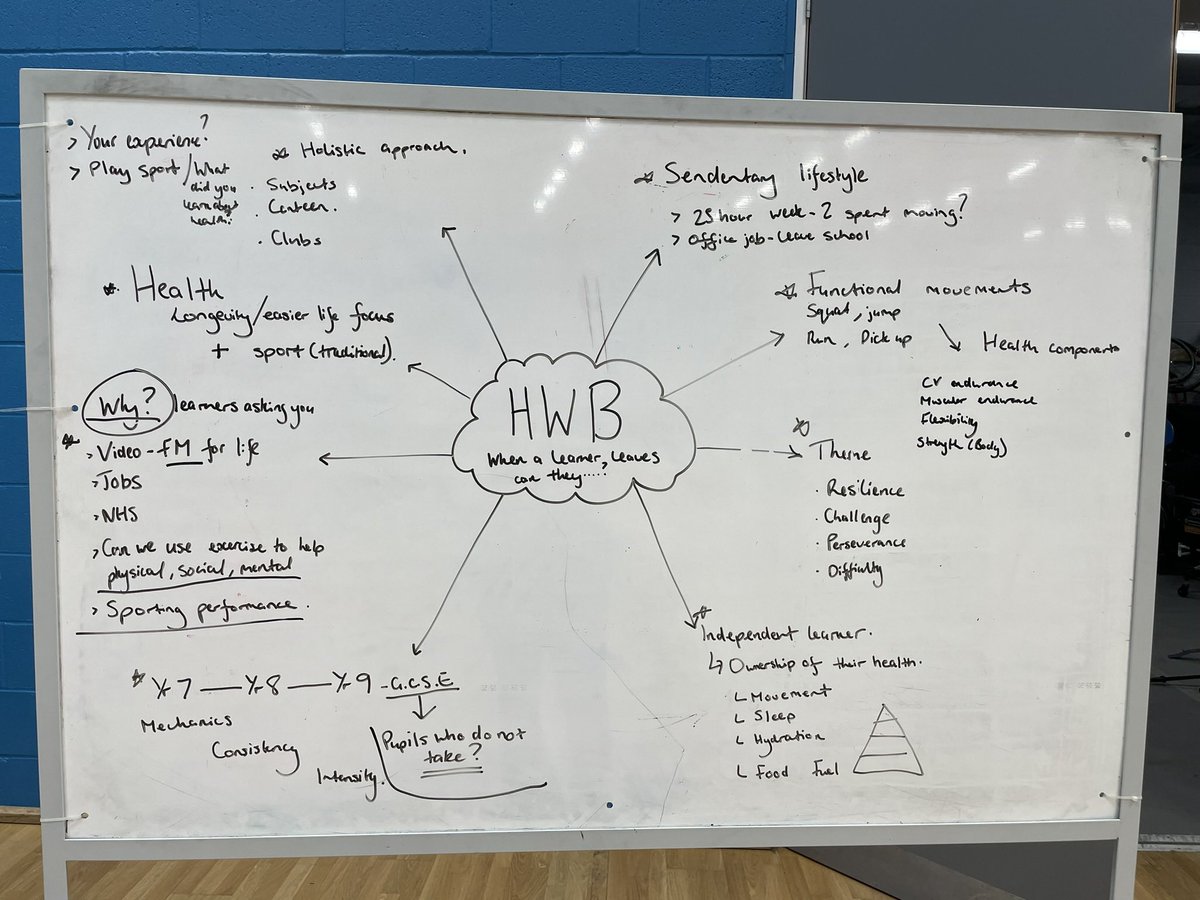 > Your experience?
> Play sport / What
did you
learn about
health?
* Holistic approach.
· Subjects
· Canteen.
· Clubs
* Sendentary lifestyle
> 25 hour week - 2 spent moving?
> Office job - leave school
* Health
Longevity/easier life focus
+ sport (traditional).
* Functional movements
Squat, jump
Run, Pick up
Health components
CV endurance
Muscular endurance
Flexibility
Strength (Body)
HWB
When a learner, leaves
can they.....
Why? learners asking you
* > Video - FM for life
> Jobs
> NHS
> Can we use exercise to help
physical, social, mental
> Sporting performance.
* Theme
· Resilience
· Challenge
· Perseverance
· Difficulty
* Independent learner.
↳ Ownership of their health.
L Movement
L Sleep
L Hydration
L Food Fuel
* Yr 7 — Yr 8 — Yr 9 - G.C.S.E
Mechanics
Consistency
Intensity.
Pupils who do not
take?